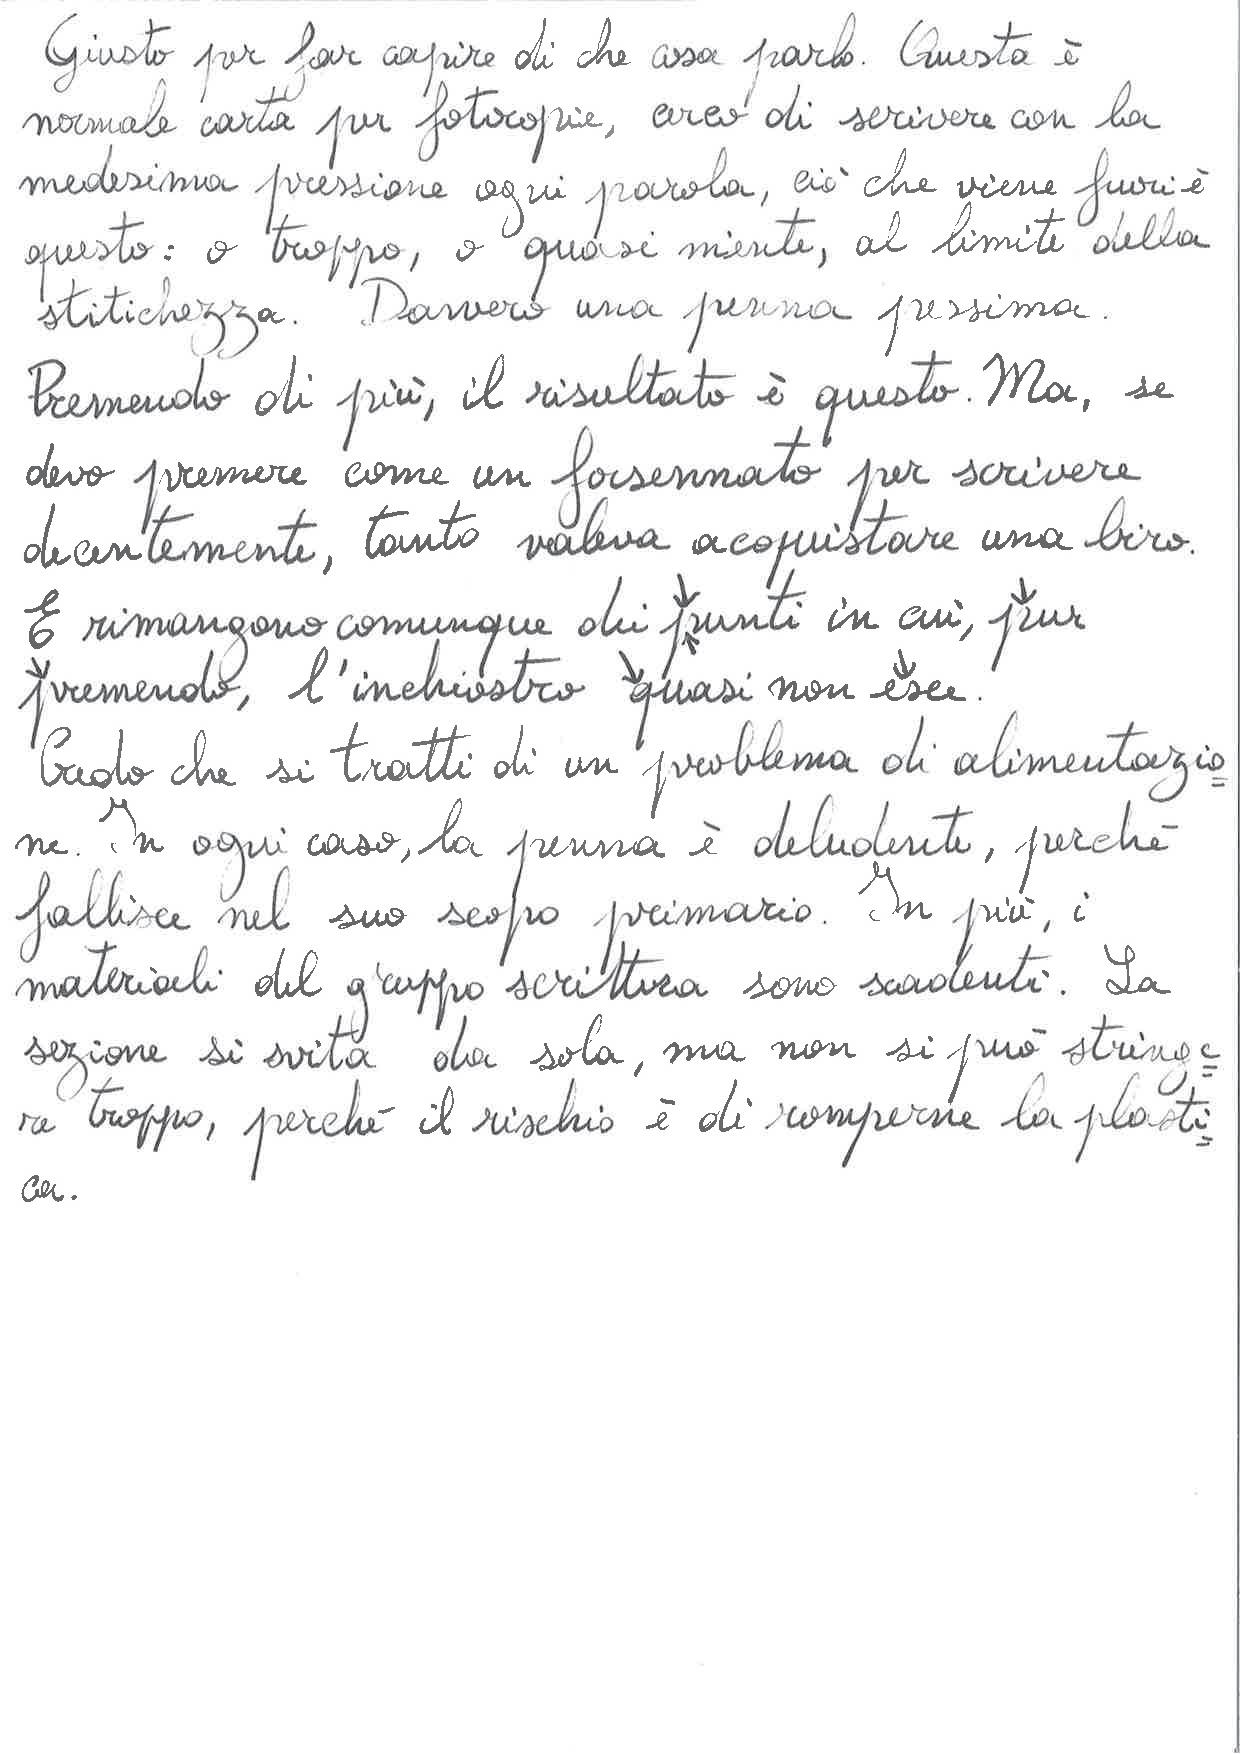 Giusto per far capire di che cosa parlo. Questa è
normale carta per fotocopie, cerco di scrivere con la
medesima pressione ogni parola, ciò che viene fuori è
questo: o troppo, o quasi niente, al limite della
stitichezza. Davvero una penna pessima.
Premendo di più, il risultato è questo. Ma, se
devo premere come un forsennato per scrivere
decentemente, tanto valeva acquistare una biro.
E rimangono comunque dei punti in cui, pur
premendo, l'inchiostro quasi non esce.
Credo che si tratti di un problema di alimentazio=
ne. In ogni caso, la penna è deludente, perché
fallisce nel suo scopo primario. In più, i
materiali del gruppo scrittura sono scadenti. La
sezione si svita da sola, ma non si può stringe=
re troppo, perché il rischio è di romperne la plasti=
ca.